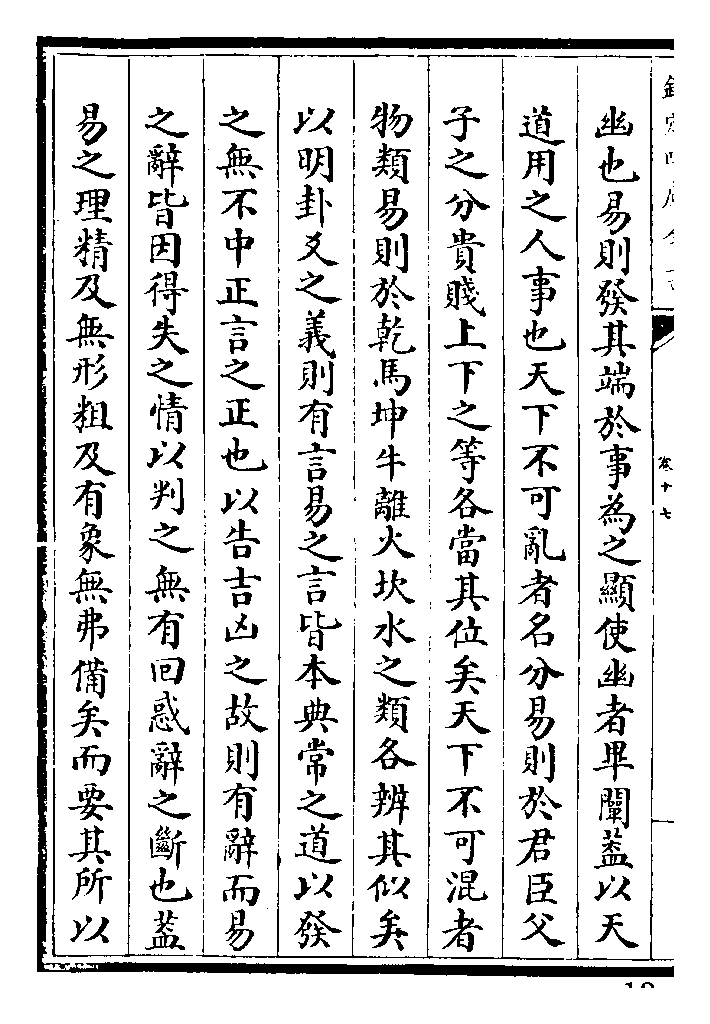 幽也易則發其端於事為之顯使幽者畢闡葢以天
道用之人事也天下不可亂者名分易則於君臣父
子之分貴賤上下之等各當其位矣天下不可混者
物類易則於乾馬坤牛離火坎水之類各辨其似矣
以明卦爻之義則有言易之言皆本典常之道以發
之無不中正言之正也以告吉凶之故則有辭而易
之辭皆因得失之情以判之無有回惑辭之斷也葢
易之理精及無形粗及有象無弗備矣而要其所以
卷十七